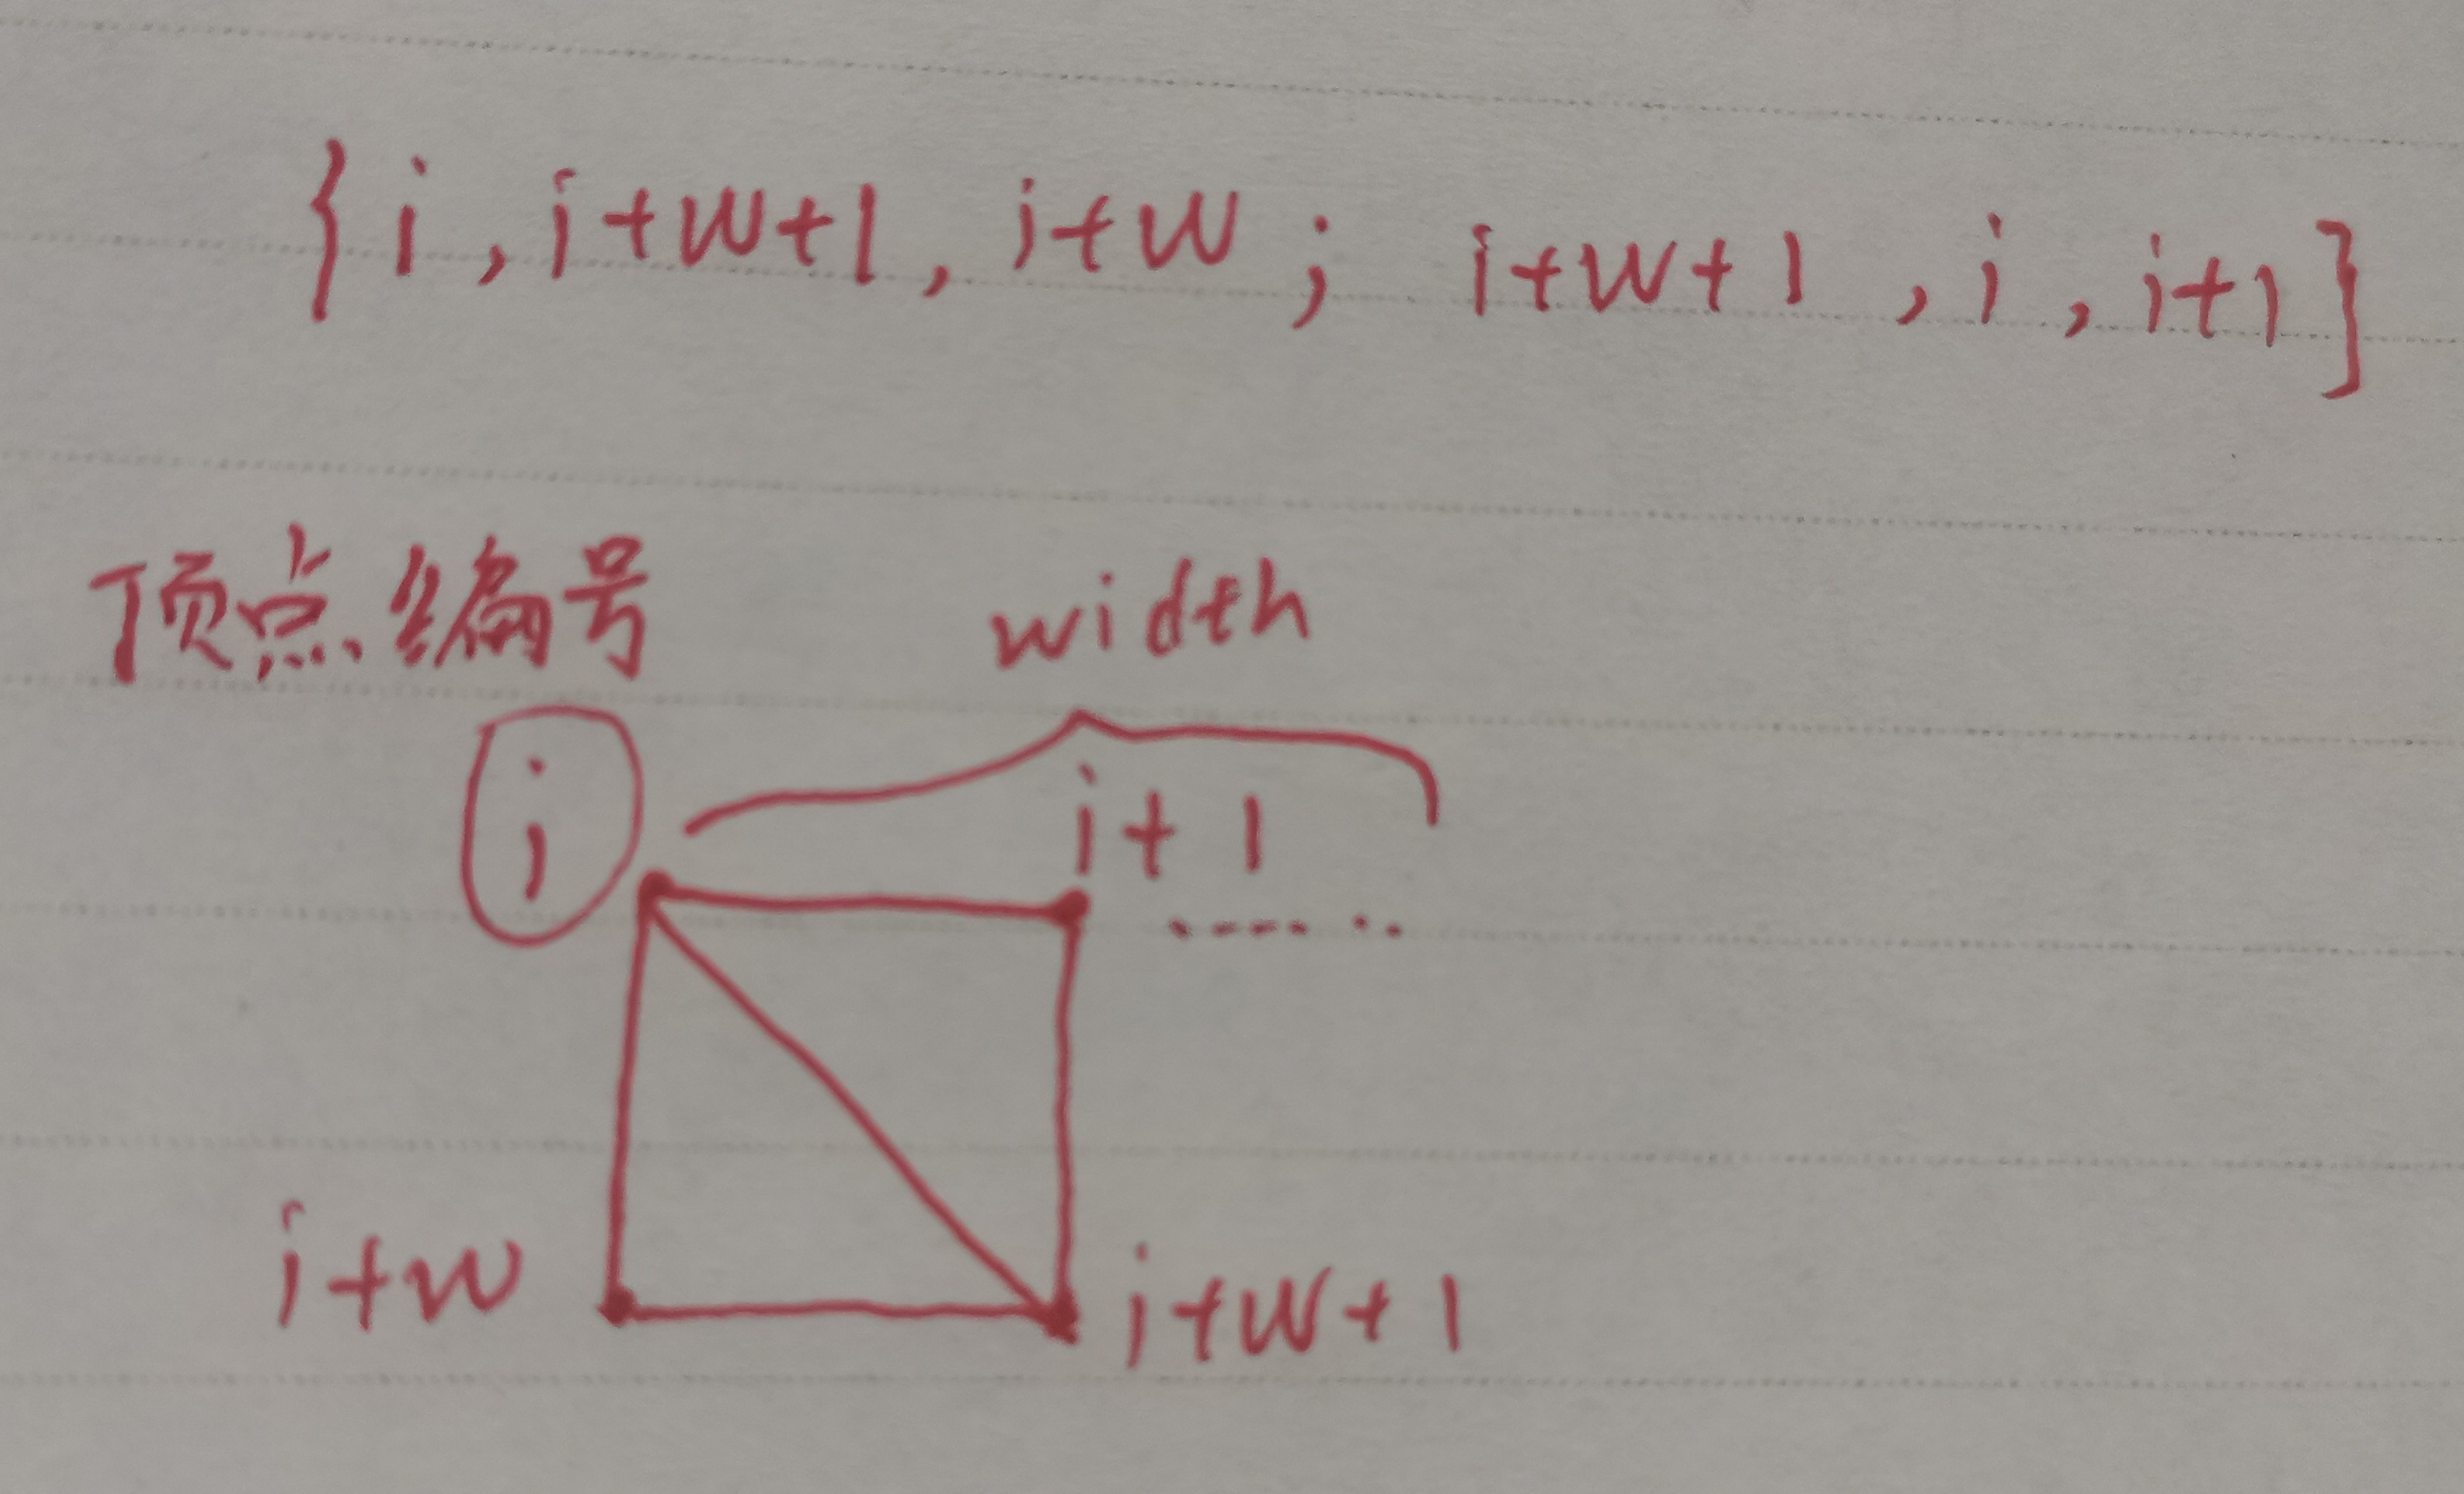 {i,i+w+1,i+w; i+w+1,i,i+1]
顶点编号
width
i
i+1
i+w
i+w+1